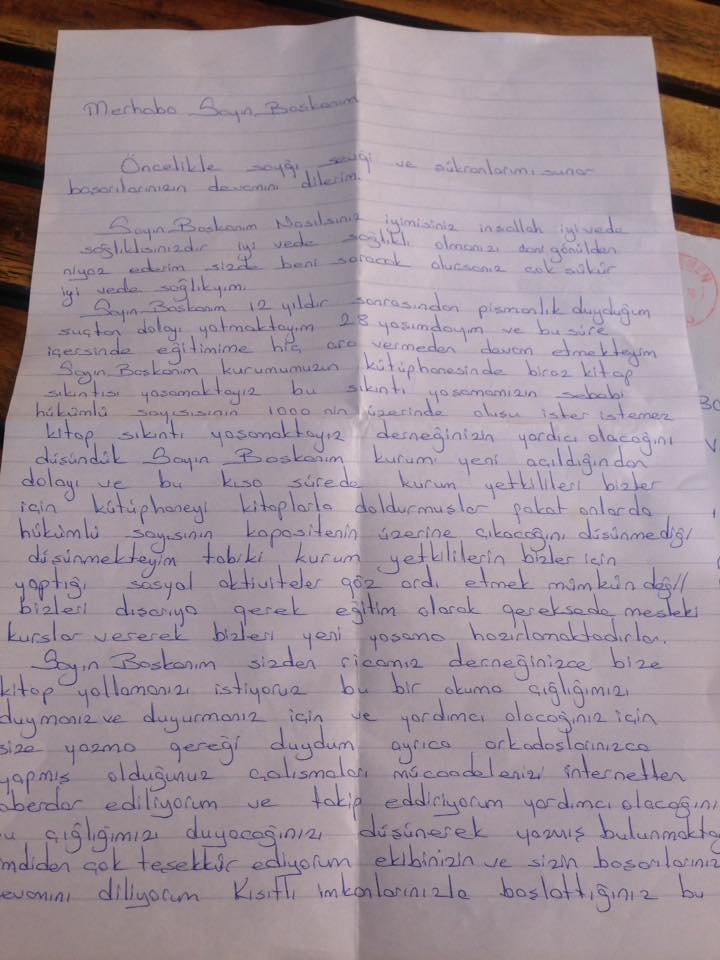 Merhaba Sayın Başkanım
Öncelikle saygı sevgi ve şükranlarımı sunar
başarılarınızın devamını dilerim.
Sayın Başkanım Nasılsınız iyimisiniz inşallah iyi vede
sağlıklısınızdır iyi vede sağlıklı olmanızı dan gönülden
niyaz ederim sizde beni soracak olursanız çok şükür
iyi vede sağlıkyım.
Sayın Başkanım 12 yıldır sonrasından pişmanlık duyduğum
suçtan dolayı yatmaktayım 28 yaşımdayım ve bu süre
içersinde eğitimime hiç ara vermeden davan etmekteyim
Sayın Başkanım kurumumuzun kütüphanesinde biraz kitap
sıkıntısı yaşamaktayız bu sıkıntı yaşamamızın sebabi
hükümlü sayısının 1000 nin üzerinde oluşu ister istemez
kitap sıkıntı yaşamaktayız derneğinizin yardıcı olacağını
düşündük Sayın Başkanım kurumı yeni açıldığından
dolayı ve bu kısa sürede kurum yetkilileri bizler
için kütüphaneyi kitaplarla doldurmuşlar pakat onlarda
hükümlü sayısının kapasitenin üzerine çıkacağını düşünmediği
düşünmekteyim tabiki kurum yetkililerin bizler için
yaptığı sosyal aktiviteler göz ardı etmek mümkün dağıl
bizleri dışarıya gerek eğitim olarak gereksede mesleki
kurslar vererek bizleri yeni yaşama hazırlamaktadırlar.
Sayın Başkanım sizden ricamız derneğinizce bize
kitap yollamanızı istiyoruz bu bir okuma çığlığımızı
duymanız ve duyurmanız için ve yardımcı olacağınız için
size yazma gereği duydum ayrıca arkadaşlarınızca
yapmış olduğunuz çalışmaları mücaadelenizi internetten
aberdar ediliyorum ve takip eddiriyorum yardımcı olacağını
u çığlığımızı duyacağınızı düşünerek yazmış bulunmakta
mdiden çok teşekkür ediyorum ekibinizin ve sizin başarılarınız
evamını diliyorum Kısıtlı imkanlarınızla başlattığınız bu